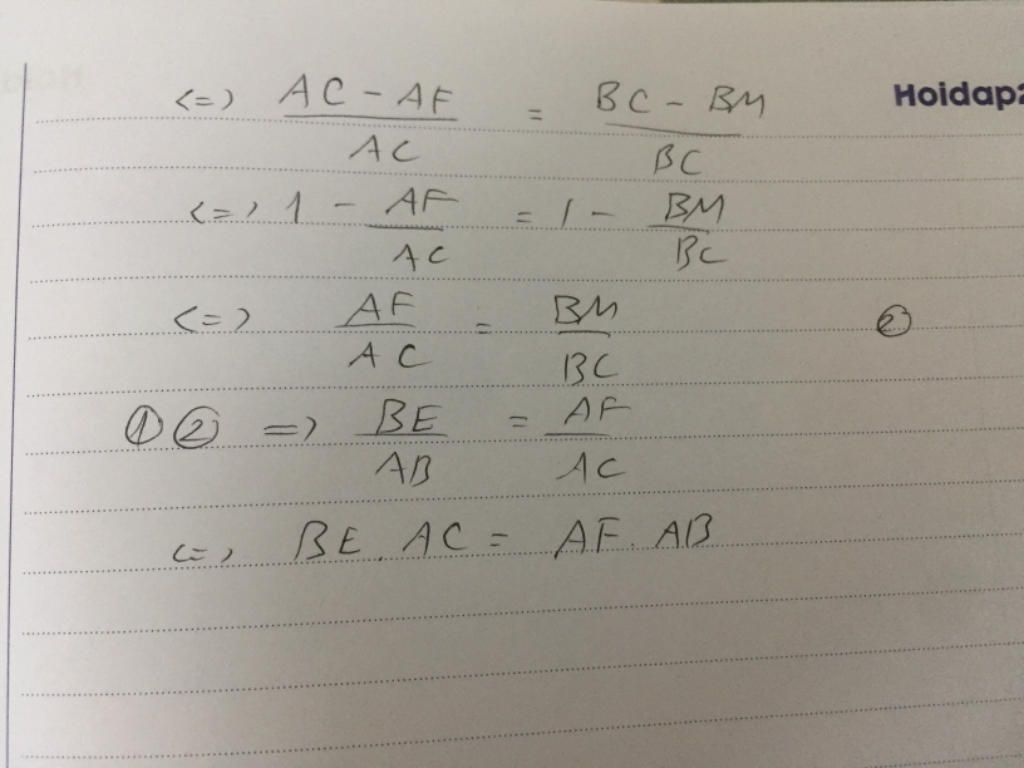 Hoidap2
<=> AC - AF / AC = BC - BM / BC
<=> 1 - AF / AC = 1 - BM / BC
<=> AF / AC = BM / BC ②
① ② => BE / AB = AF / AC
<=> BE . AC = AF . AB